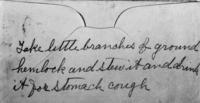 Take little branches of ground
hemlock and stew it and drink
it for stomach cough